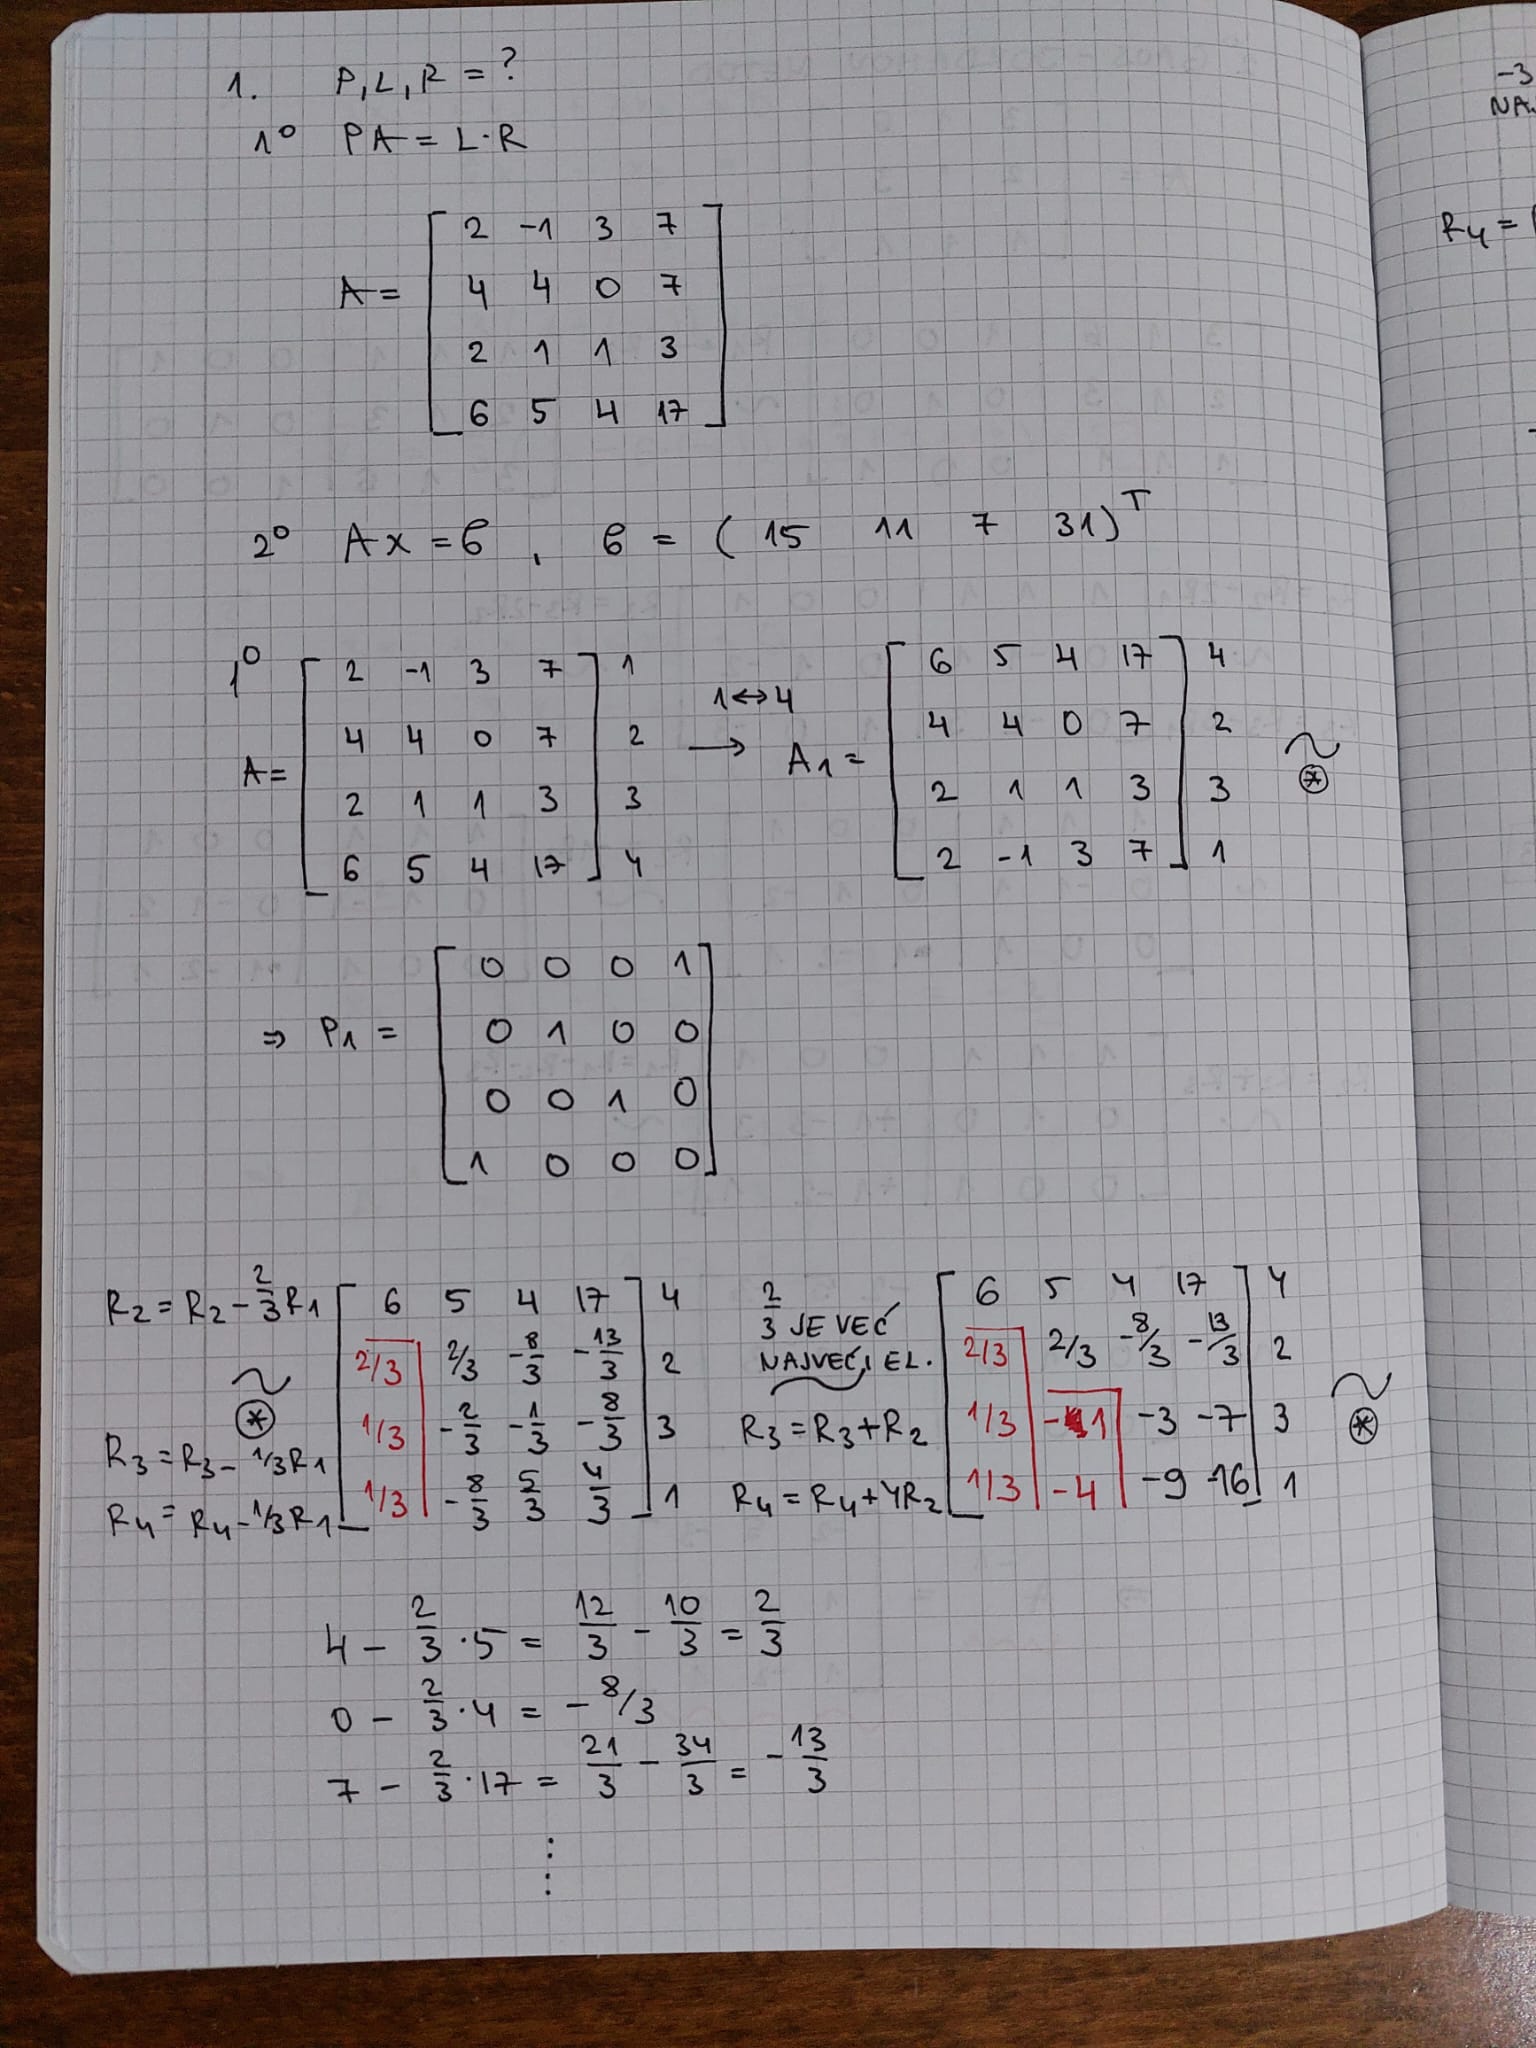 1. P, L, R = ?
1° PA = L·R
A =
2 -1 3 7
4 4 0 7
2 1 1 3
6 5 4 17
2° Ax = b, b = ( 15 11 7 31)^T
1°
A =
2 -1 3 7 1
4 4 0 7 2
2 1 1 3 3
6 5 4 17 4
1↔4
→
A1 =
6 5 4 17 4
4 4 0 7 2
2 1 1 3 3
2 -1 3 7 1
~
⊛
⇒ P1 =
0 0 0 1
0 1 0 0
0 0 1 0
1 0 0 0
R2 = R2 - 2/3 R1
~
⊛
R3 = R3 - 1/3 R1
R4 = R4 - 1/3 R1
6 5 4 17 4
2/3 2/3 -8/3 -13/3 2
1/3 -2/3 -1/3 -8/3 3
1/3 -8/3 5/3 4/3 1
2/3 JE VEĆ
NAJVEĆI EL.
R3 = R3 + R2
R4 = R4 + 4R2
6 5 4 17 4
2/3 2/3 -8/3 -13/3 2
1/3 -1 -3 -7 3
1/3 -4 -9 -16 1
~
⊛
4 - 2/3 · 5 = 12/3 - 10/3 = 2/3
0 - 2/3 · 4 = - 8/3
7 - 2/3 · 17 = 21/3 - 34/3 = - 13/3
⋮
-3
R4 =